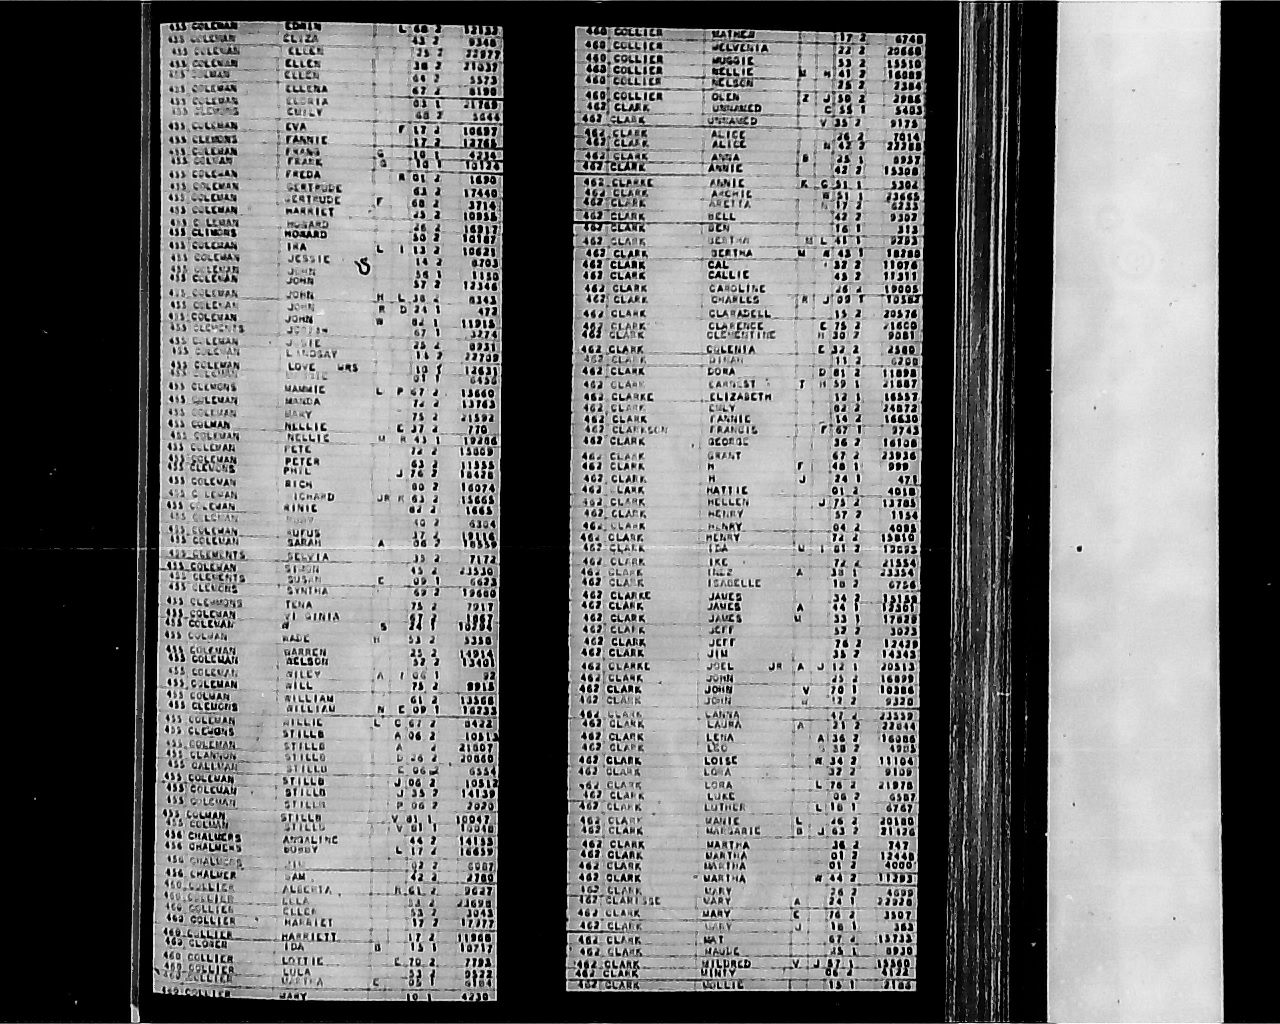 455 COLEMAN EDWIN L 68 2 12132
455 COLEMAN ELIZA 43 2 9348
455 COLEMAN ELLEN 25 2 22977
455 COLEMAN ELLEN 38 2 21037
455 COLMAN ELLEN 64 2 5573
455 COLEMAN ELLENA 67 2 8190
455 COLEMAN 03 1 21769
455 CLEMONS EMILY 68 2 5644
455 COLEMAN EVA F 17 2 10697
455 CLEMONS FANNIE 17 2 12765
455 COLEMAN FRANK G 10 1 4234
455 COLMAN FRANK G 10 1 10124
455 COLEMAN FREDA R 01 2 1690
455 COLEMAN GERTRUDE 63 2 17440
455 COLEMAN GERTRUDE F 68 2 3714
455 COLEMAN HARRIET 25 2 10955
455 COLEMAN HOWARD 26 2 16917
455 CLEMONS HOWARD 50 2 10187
455 COLEMAN IRA L I 13 2 10621
455 COLEMAN JESSIE 14 2 8703
455 COLEMAN JOHN 56 1 1150
455 COLEMAN JOHN 57 2 12346
455 COLEMAN JOHN H L 38 2 8343
455 COLEMAN JOHN R D 24 1 472
455 COLEMAN JOHN W 82 1 11915
455 CLEMENTS 67 1 3274
455 COLEMAN 25 2 8931
455 COLEMAN LINDSAY 16 2 22709
455 COLEMAN LOVE MRS 10 1 12631
455 COLEMAN 01 1 6456
455 CLEMONS MAMMIE L P 67 2 13660
455 COLEMAN MANDA 72 2 13763
455 COLEMAN MARY 75 2 21592
455 COLMAN NELLIE E 37 2 770
455 COLEMAN NELLIE M R 43 1 19286
455 COLEMAN PETE 72 2 15809
455 COLEMAN PETER 63 2 11555
455 CLEMONS PHIL J 76 2 18428
455 COLEMAN RICH 80 2 16074
455 COLEMAN RICHARD JR R 63 2 15665
455 COLEMAN RINIE 82 2 1665
455 COLEMAN RUBY 40 2 6304
455 COLEMAN RUFUS 37 2 19116
455 COLEMAN SARAH A 06 2 18559
455 CLEMENTS SELVIA 35 2 7172
455 COLEMAN SIMON 45 2 23530
455 CLEMENTS SUSAN E 09 1 6623
455 CLEMONS SYNTHA 69 2 19680
455 CLEMMONS TENA 75 2 7917
455 COLEMAN VIRGINIA 67 2 1867
455 COLEMAN W S 24 1 10294
455 COLMAN WADE H 53 2 5350
455 COLEMAN WARREN 25 2 14914
455 COLEMAN WELSON 52 2 13401
455 COLEMAN WILEY A I 06 1 92
455 COLEMAN WILL 75 2 8915
455 COLMAN WILLIAM 61 2 13566
455 CLEMONS WILLIAM N E 09 1 16233
455 COLEMAN WILLIE L C 67 2 8422
455 CLEMONS STILLB A 06 2 10513
455 COLEMAN STILLB A 2 21807
455 CLANNON STILLB D 26 2 20860
455 CALLMAN STILLB E 06 2 6554
455 COLEMAN STILLB J 06 2 10512
455 COLEMAN STILLB J 35 2 14139
455 COLEMAN STILLB P 06 2 2020
455 COLMAN STILLB V 81 1 10047
455 COLMAN STILLB V 81 1 10048
456 CHALMERS ANGALINE 44 2 14155
456 CHALMERS BOBBY L 17 2 16659
456 CHALMERS JIM 02 2 6087
456 CHALMER SAM 42 2 2780
460 COLLIER ALBERTA R 61 2 9627
460 COLLIER ELLA 53 2 23698
460 COLLIER ELLEN 53 2 3043
460 COLLIER HARRIET 17 2 17377
460 COLLIER HARRIETT 17 2 11968
460 CLOSER IDA B 15 1 18717
460 COLLIER LOTTIE E 70 2 7793
460 COLLIER LULA 53 2 9522
460 COLLIER MARTHA E 05 1 6184
460 COLLIER MARY 10 1 4230
460 COLLIER MATHEW 17 2 6748
460 COLLIER MELVENIA 22 2 20668
460 COLLIER MUGGIE 53 2 15510
460 COLLIER NELLIE M H 41 2 16089
460 COLLIER NELSON 25 2 2384
460 COLLIER OLEN Z J 50 2 2986
462 CLARK UNNAMED C 55 1 5403
462 CLARK UNNAMED V 35 2 9175
462 CLARK ALICE 26 2 7014
462 CLARK ALICE N 42 2 22288
462 CLARK ANNA B 25 1 8937
462 CLARK ANNIE 42 2 15308
462 CLARKE ANNIE K G 51 1 5302
462 CLARK ARCHIE W 51 1 23665
462 CLARK ARETTA 6233
462 CLARK BELL 42 2 9307
462 CLARK BEN 16 1 313
462 CLARK BERTHA M L 41 1 9293
462 CLARK BERTHA M W 43 1 18280
462 CLARK CAL 32 2 11076
462 CLARK CALLIE 45 2 17311
462 CLARK CAROLINE 26 2 19005
462 CLARK CHARLES R J 09 1 10582
462 CLARK CLARADELL 15 2 20576
462 CLARK CLARENCE E 75 2 21600
462 CLARK CLEMENTINE H 30 2 9081
462 CLARK CULENIA E 32 2 2580
462 CLARK DINAH 11 2 6208
462 CLARK DORA D 81 2 11898
462 CLARK EARNEST T H 59 1 21887
462 CLARKE ELIZABETH 12 1 16557
462 CLARK EMLY 02 2 24872
462 CLARK FANNIE 14 2 16630
462 CLARKSON FRANCIS F 67 1 9743
462 CLARK GEORGE 36 2 16108
462 CLARK GRANT 67 2 23936
462 CLARK H F 48 1 999
462 CLARK H J 24 1 471
462 CLARK HATTIE 01 2 4018
462 CLARK HELLEN J 75 2 13785
462 CLARK HENRY 57 2 1154
462 CLARK HENRY 04 2 4095
462 CLARK HENRY 72 2 15810
462 CLARK IDA M I 81 2 19093
462 CLARK IKE 72 2 21554
462 CLARK INEZ A 38 1 23354
462 CLARK ISABELLE 18 2 6756
462 CLARKE JAMES 34 2 15159
462 CLARK JAMES A 44 1 12301
462 CLARK JAMES M 33 1 17829
462 CLARK JEFF 52 2 3023
462 CLARK JEFF 76 2 12429
462 CLARK JIM 35 2 14343
462 CLARKE JOEL JR A J 12 1 20513
462 CLARK JOHN 25 2 16899
462 CLARK JOHN V 70 1 10386
462 CLARK JOHN W 12 2 9320
462 CLARK LANNA 47 2 23559
462 CLARK LAURA A 31 2 22044
462 CLARK LENA A 36 2 16086
462 CLARK LEO G 38 2 4905
462 CLARK LOISE W 34 2 11104
462 CLARK LORA 32 2 9109
462 CLARK LORA L 76 2 21978
462 CLARK LUKE 06 2 6587
462 CLARK LUTHER L 16 1 6767
462 CLARK MANIE L 26 2 20180
462 CLARK MARGARIE B J 63 2 21426
462 CLARK MARTHA 36 2 747
462 CLARK MARTHA 01 2 12448
462 CLARK MARTHA 01 2 40001
462 CLARK MARTHA W 44 2 11293
462 CLARK MARY 26 2 4699
462 CLARISSE MARY A 24 1 22928
462 CLARK MARY E 76 2 3507
462 CLARK MARY J 16 1 363
462 CLARK MAT 67 2 15733
462 CLARK MAUDE 25 1 8930
462 CLARK MILDRED V J 57 1 15560
462 CLARK MINTY 06 2 4122
462 CLARK MOLLIE 15 1 2186